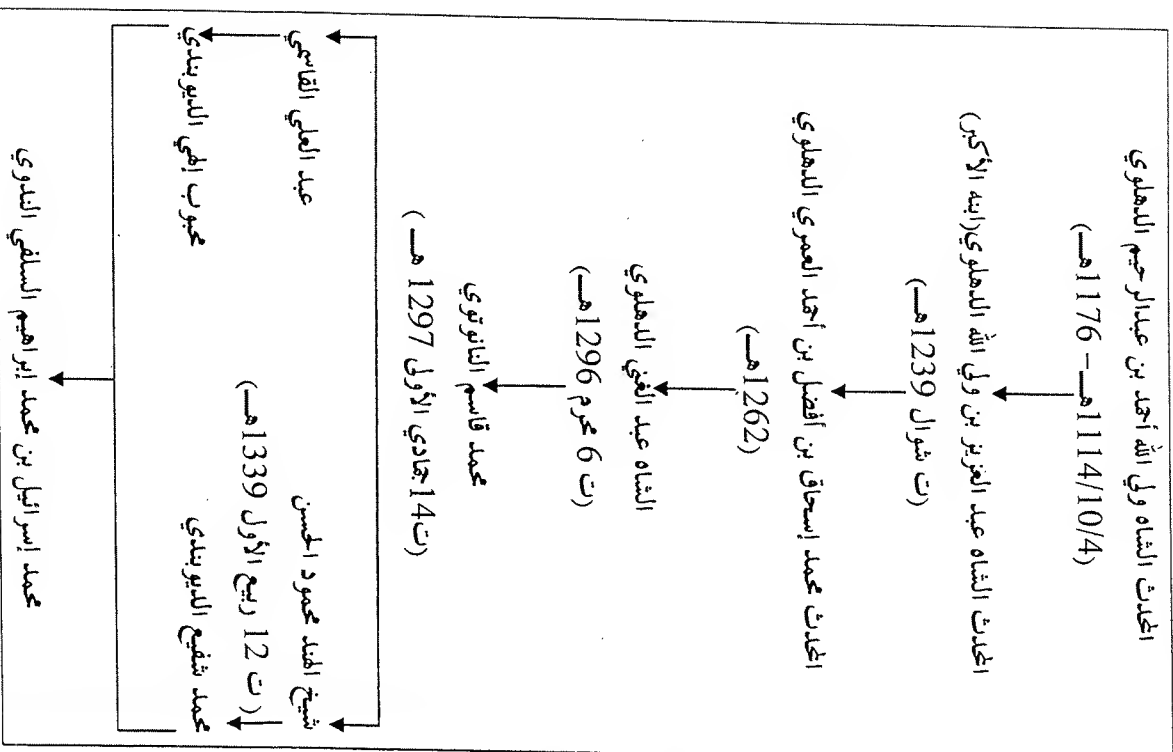 المحدث الشاه ولي الله أحمد بن عبدالرحيم الدهلوي
(1114/10/4هـ – 1176هـ)
المحدث الشاه عبد العزيز بن ولي الله الدهلوي(ابنه الأكبر)
(ت شوال 1239هـ)
المحدث محمد إسحاق بن أفضل بن أحمد العمري الدهلوي
(1262هـ)
الشاه عبد الغني الدهلوي
(ت 6 محرم 1296هـ)
محمد قاسم النانوتوي
(ت14جمادي الأولى 1297 هـ )
عبد العلي القاسمي
شيخ الهند محمود الحسن
( ت 12 ربيع الأول 1339هـ)
محبوب إلهي الديوبندي
محمد شفيع الديوبندي
محمد إسرائيل بن محمد إبراهيم السلفي الندوي